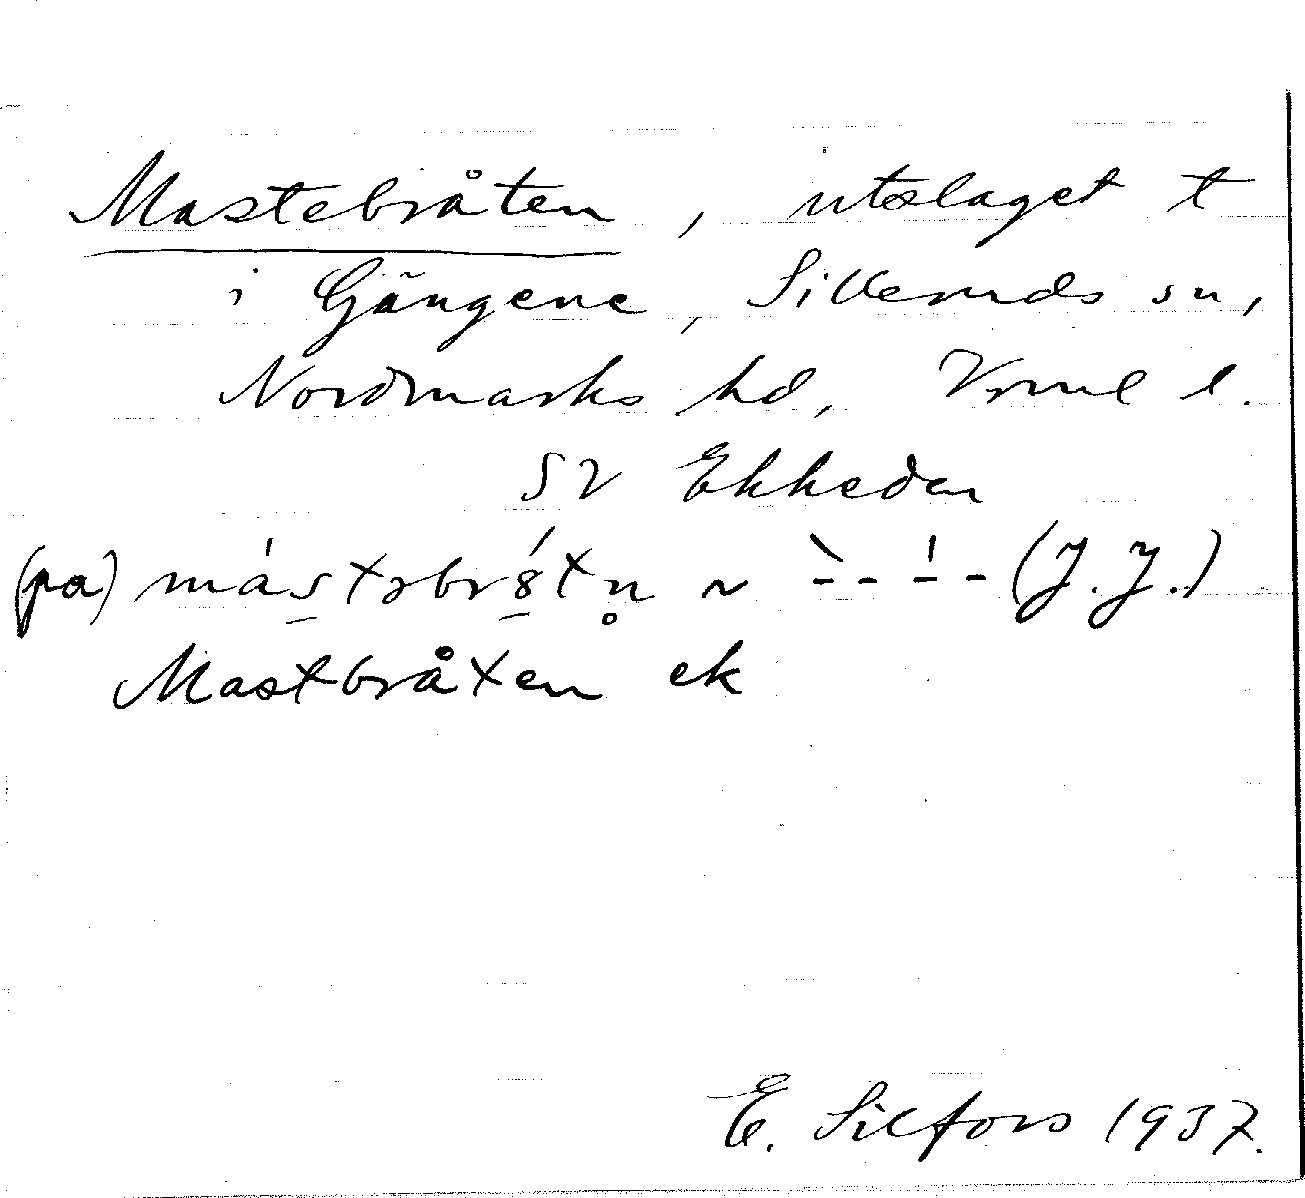 Mastebråten, utslaget t
i Gängene, Silleruds sn,
Nordmarks hd, Vrml l.
SV Ekheden
(pa) mástəbrótn̥ ~ `-- '-- (J. J.)
Mastbråten ek
E. Silfors 1937.